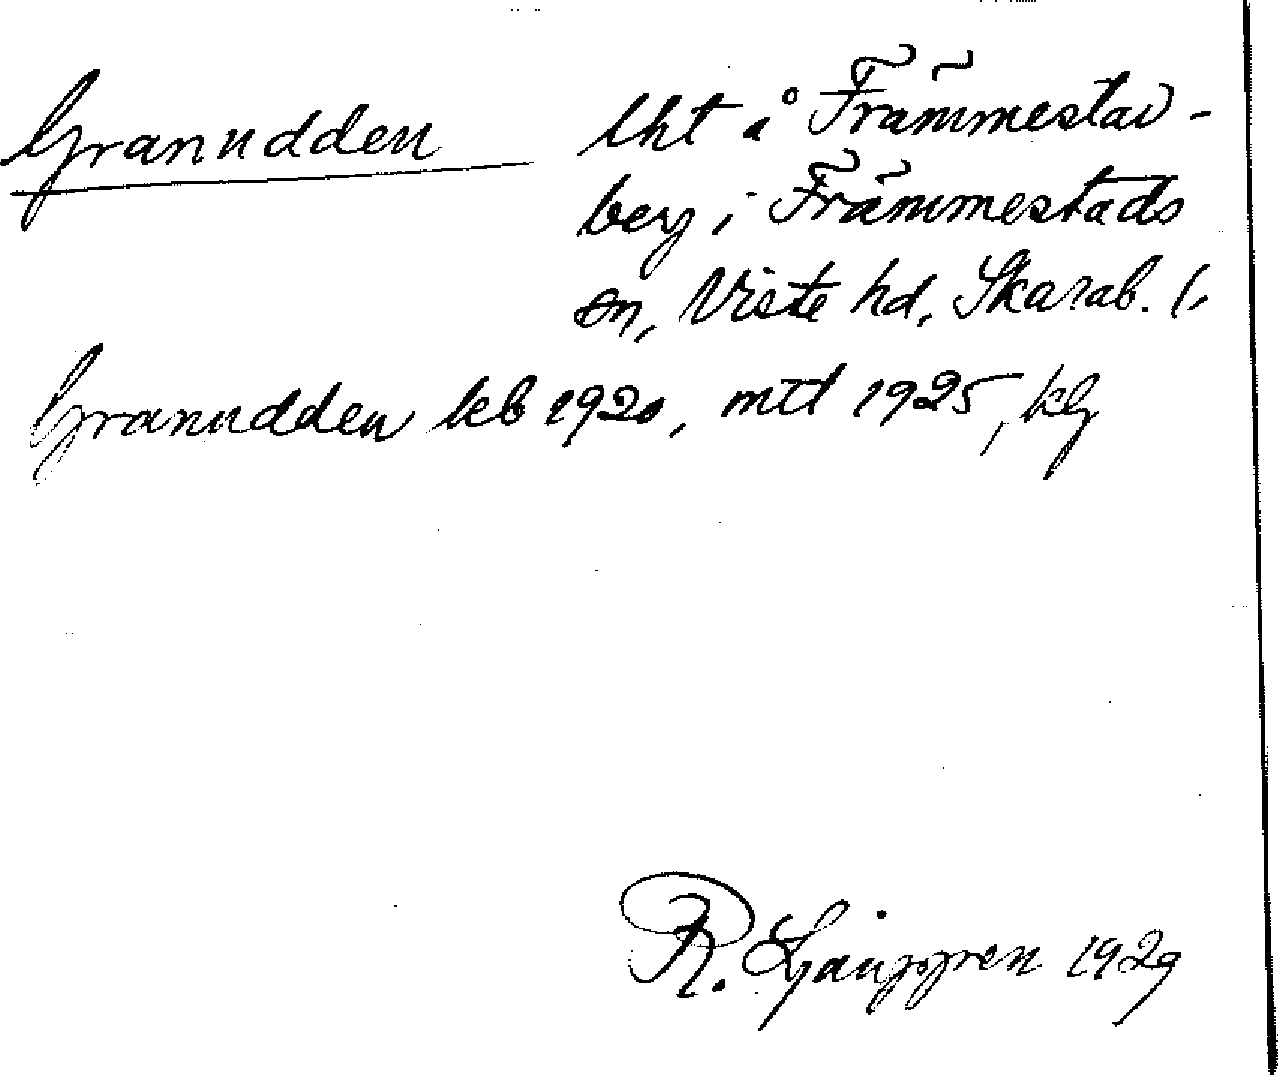 Granudden lht å Främmestad-
berg i Främmestads
sn, Viste hd, Skarab. l.
Granudden kb 1920, mtl 1925, kg
R. Ljunggren 1929